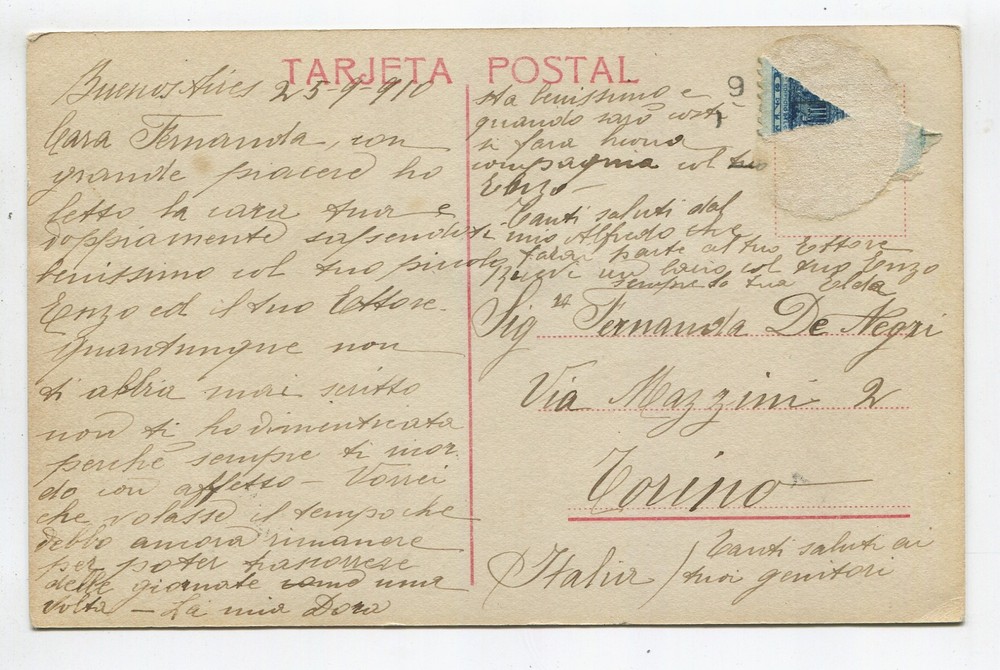 TARJETA POSTAL
Buenos Aires 25-9-910
Cara Fernanda, con
grande piacere ho
letto la cara tua e
doppiamente sapendoti
benissimo col tuo piccolo
Enzo ed il tuo Ettore.
Quantunque non
ti abbia mai scritto
non ti ho dimenticata
perchè sempre ti incor
do con affetto - Vorrei
che volasse il tempo che
debbo ancora rimanere
per poter trascorrere
delle giornate come una
volta - La mia Dora
sta benissimo e
quando sarò costì
ti farà buona
compagnia col tuo
Enzo -
Tanti saluti dal
mio Alfredo che
farai parte al tuo Ettore
Ricevi un bacio col tuo Enzo
sempre la tua Elda
9
Sig ra Fernanda De Negri
Via Mazzini 2
Torino
(Italia)
Tanti saluti ai
tuoi genitori